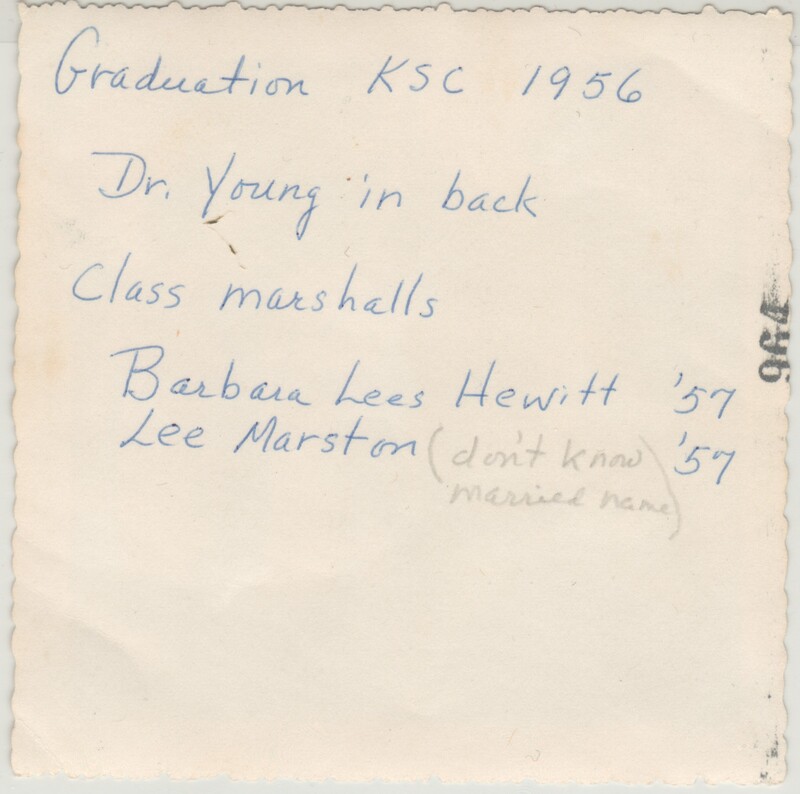 Graduation KSC 1956
Dr. Young in back
Class marshalls
Barbara Lees Hewitt '57
Lee Marston (don't know married name) '57
964